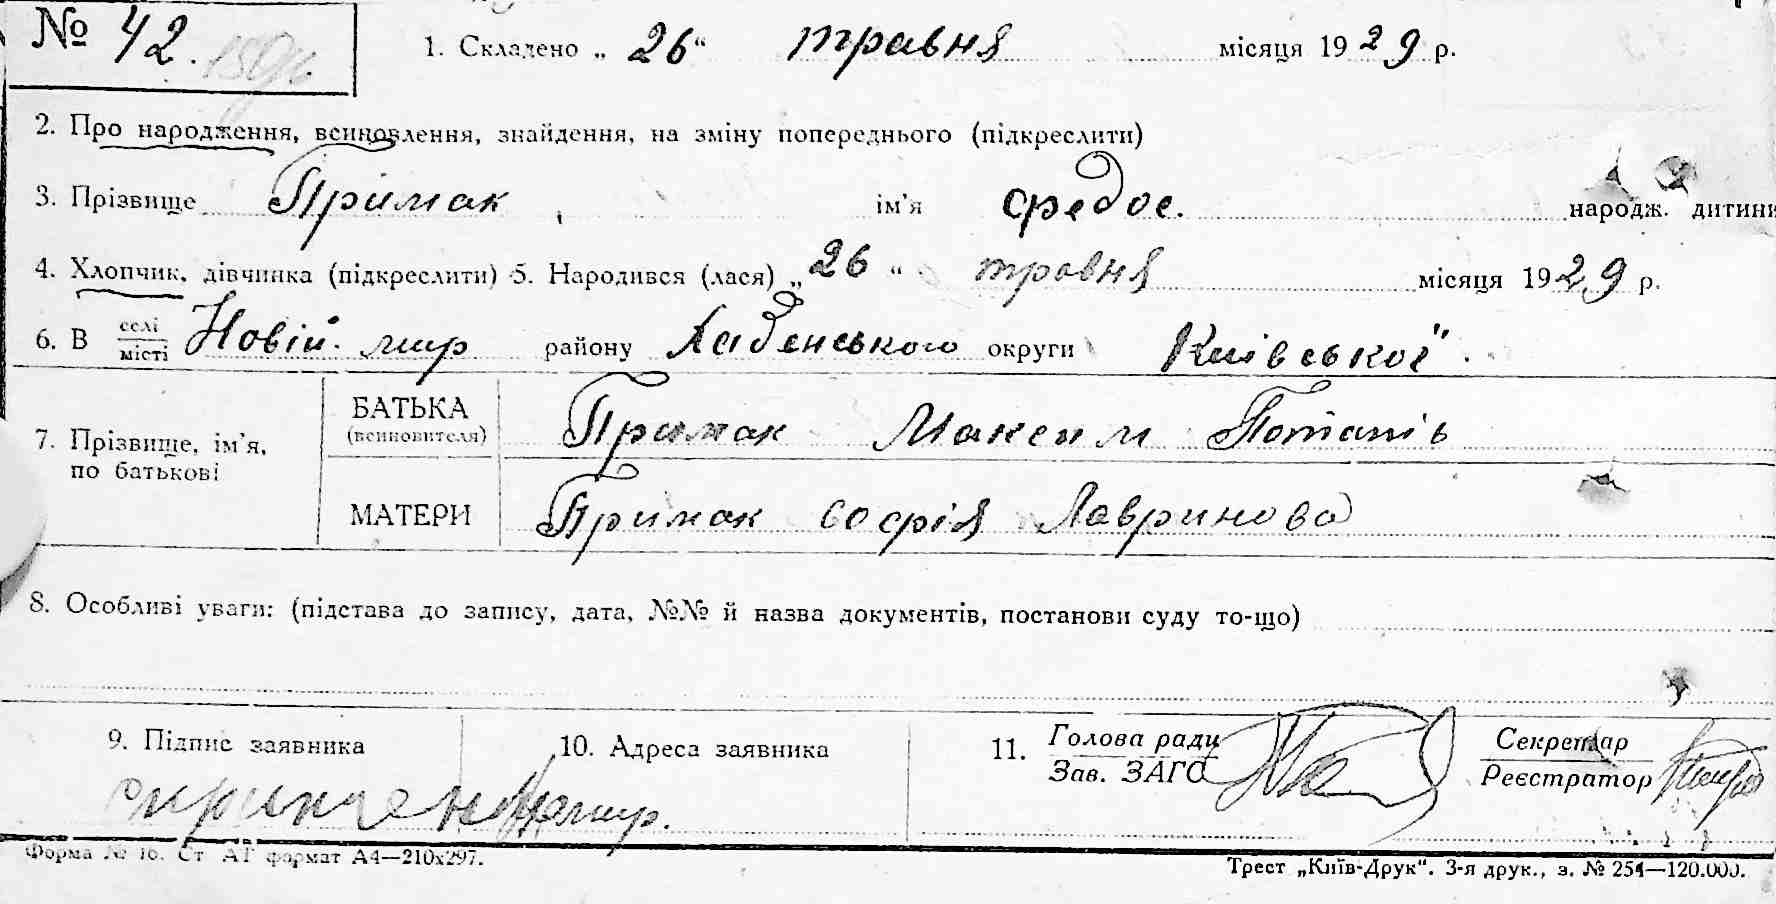 № 42.
1. Складено „ 26 “ травня місяця 1929 р.
2. Про народження, всиновлення, знайдення, на зміну попереднього (підкреслити)
3. Прізвище Примак ім'я Федос. народж. дитини
4. Хлопчик, дівчинка (підкреслити) 5. Народився (лася) „ 26 “ травня місяця 1929 р.
6. В селі місті Новій. мир району Хабенського округи Київської.
7. Прізвище, ім'я, по батькові
БАТЬКА (всиновителя) Примак Максим Потапів
МАТЕРИ Примак Софія Лавринова
8. Особливі уваги: (підстава до запису, дата, №№ й назва документів, постанови суду то-що)
9. Підпис заявника 10. Адреса заявника 11. Голова ради Зав. ЗАГС Секретар Реєстратор
Форма № 16. Ст АТ формат А4—210х297.
Трест „Київ-Друк“. 3-я друк., з. № 254—120.000.